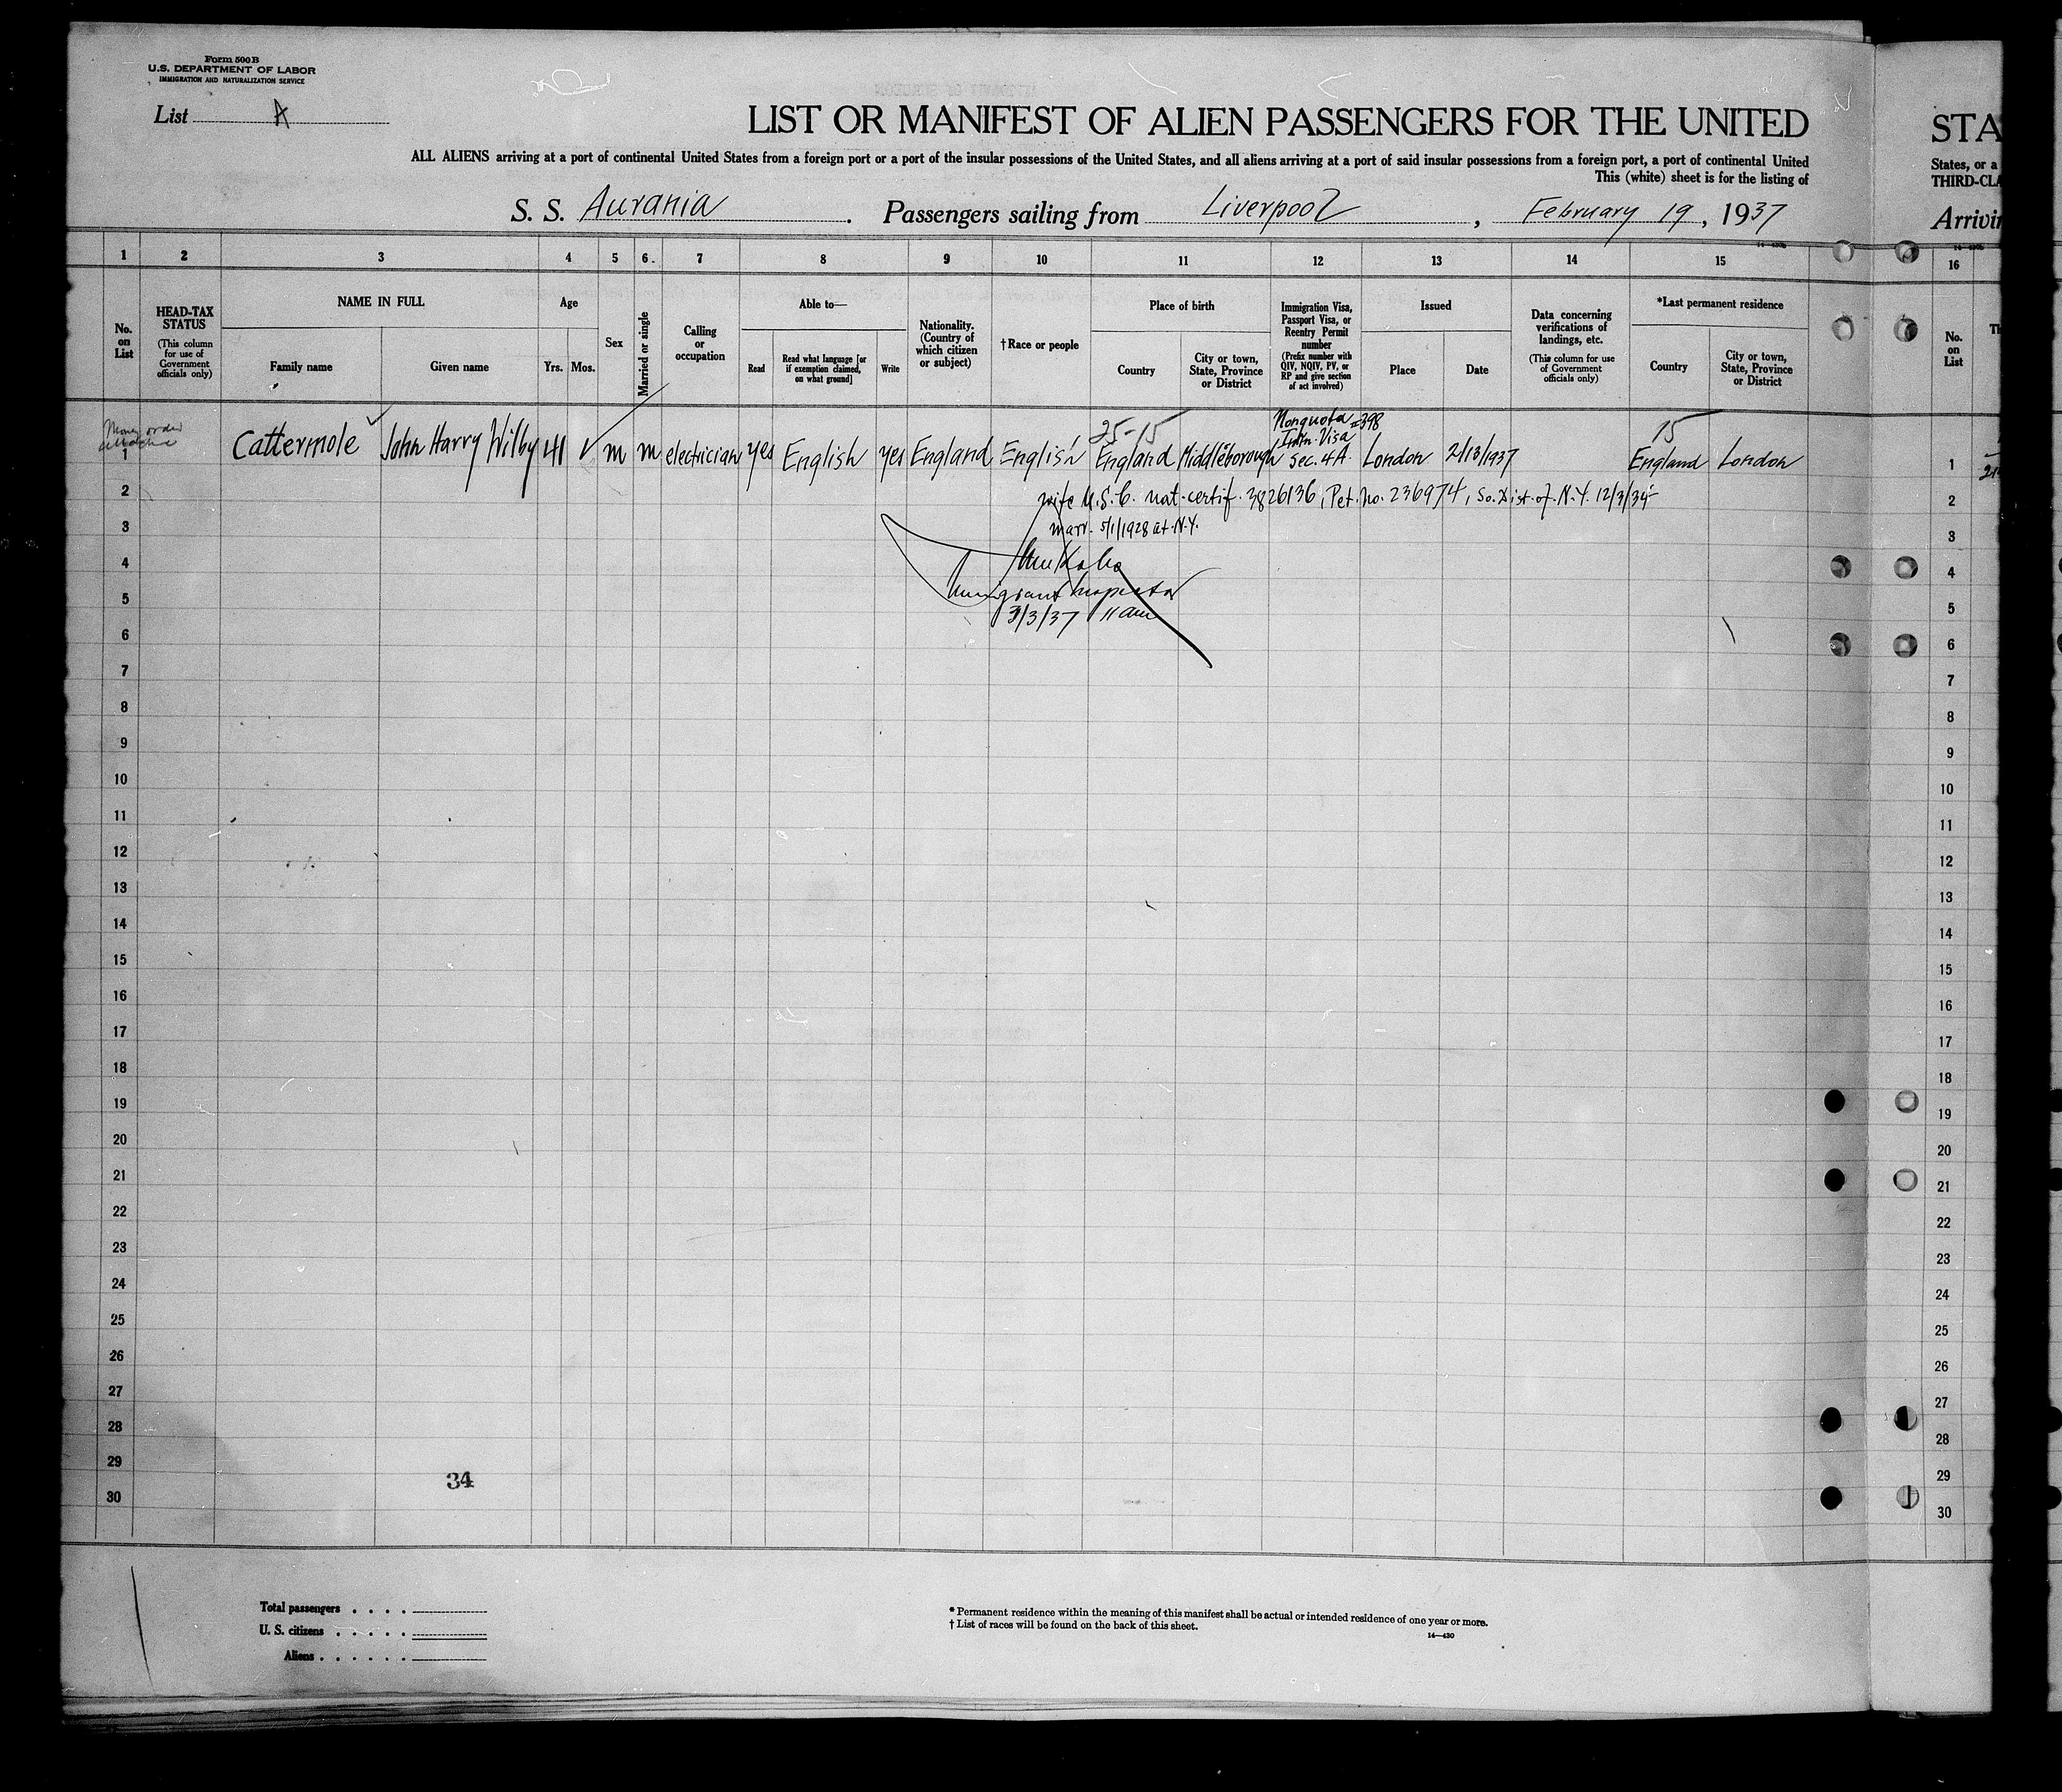 Form 500 B
U.S. DEPARTMENT OF LABOR
IMMIGRATION AND NATURALIZATION SERVICE
List A
LIST OR MANIFEST OF ALIEN PASSENGERS FOR THE UNITED
STA
ALL ALIENS arriving at a port of continental United States from a foreign port or a port of the insular possessions of the United States, and all aliens arriving at a port of said insular possessions from a foreign port, a port of continental United
States, or a
This (white) sheet is for the listing of
THIRD-CLA
S. S. Aurania. Passengers sailing from Liverpool, February 19, 1937
Arrivin
1 2 3 4 5 6. 7 8 9 10 11 12 13 14 15
16
No. on List
HEAD-TAX STATUS
(This column for use of Government officials only)
NAME IN FULL
Family name
Given name
Age
Yrs. Mos.
Sex
Married or single
Calling or occupation
Able to—
Read
Read what language [or if exemption claimed, on what ground]
Write
Nationality. (Country of which citizen or subject)
†Race or people
Place of birth
Country
City or town, State, Province or District
Immigration Visa, Passport Visa, or Reentry Permit number
(Prefix number with QIV, NQIV, PV, or RP and give section of act involved)
Issued
Place
Date
Data concerning verifications of landings, etc.
(This column for use of Government officials only)
*Last permanent residence
Country
City or town, State, Province or District
No. on List
Th
Money order
25-15
Nonquota #398
Imm. Visa
15
1 Cattermole John Harry Wilby 41 m m electrician yes English yes England English England Middleborough Sec. 4A London 2/13/1937 England London
1
2 wife U.S.C. nat. certif. 3826136, Pet. no. 236974, So. Dist. of N.Y. 12/3/34
2
3 marr. 5/1/1928 at N.Y.
3
4
4
5 Immigrant Inspector
5
3/3/37 11 am
6
6
7
7
8
8
9
9
10
10
11
11
12
12
13
13
14
14
15
15
16
16
17
17
18
18
19
19
20
20
21
21
22
22
23
23
24
24
25
25
26
26
27
27
28
28
29
29
34
30
30
Total passengers . . . .
U. S. citizens . . . . .
Aliens . . . . . .
* Permanent residence within the meaning of this manifest shall be actual or intended residence of one year or more.
† List of races will be found on the back of this sheet.
14—430